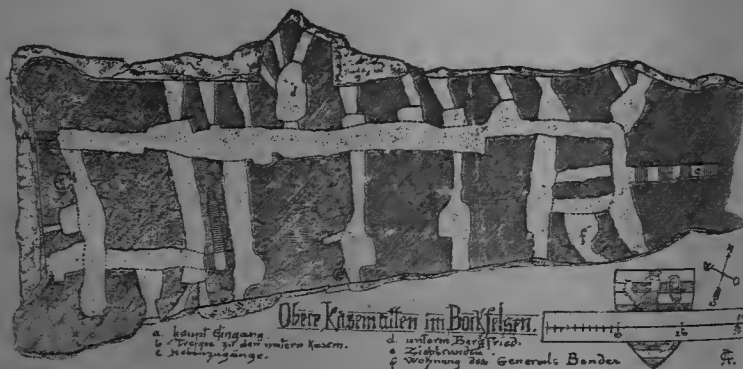 Obere Kasematten im Bockfelsen.
a. Haupt Eingang.
b. Treppe zu den untern Kasem.
c. Nebenzugänge.
d. unterm Bergfried.
e
f Wohnung des Generals Bender